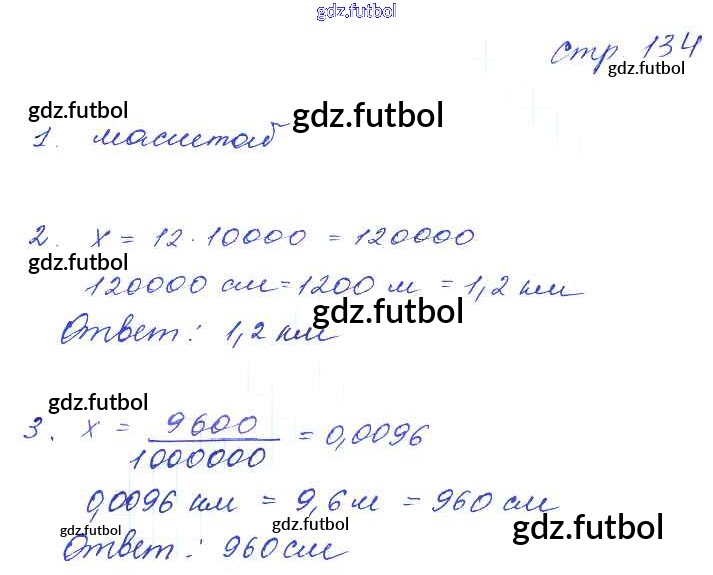 gdz.futbol
стр 134
gdz.futbol
gdz.futbol
gdz.futbol
1. масштаб
2. x = 12 · 10000 = 120000
gdz.futbol
120000 см = 1200 м = 1,2 км
gdz.futbol
Ответ: 1,2 км
gdz.futbol
3. x = 9600 / 1000000 = 0,0096
0,0096 км = 9,6 м = 960 см
gdz.futbol
gdz.futbol
gdz.futbol
Ответ: 960 см